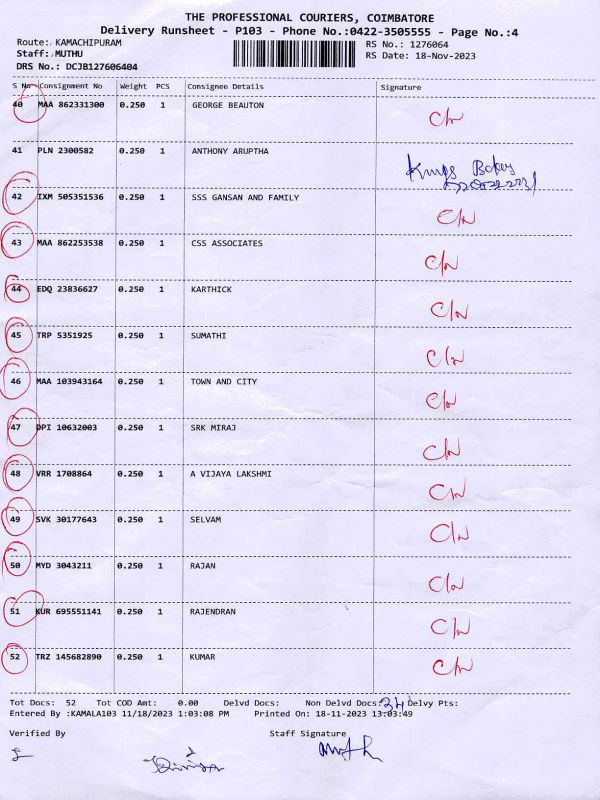 THE PROFESSIONAL COURIERS, COIMBATORE
Delivery Runsheet - P103 - Phone No.:0422-3505555 - Page No.:4
Route: KAMACHIPURAM RS No.: 1276064
Staff: MUTHU RS Date: 18-Nov-2023
DRS No.: DCJB127606404
S No Consignment No Weight PCS Consignee Details Signature
40 MAA 862331300 0.250 1 GEORGE BEAUTON C/N
41 PLN 2300582 0.250 1 ANTHONY ARUPTHA Kings
42 IXM 505351536 0.250 1 SSS GANSAN AND FAMILY C/N
43 MAA 862253538 0.250 1 CSS ASSOCIATES C/N
44 EDQ 23836627 0.250 1 KARTHICK C/N
45 TRP 5351925 0.250 1 SUMATHI C/N
46 MAA 103943164 0.250 1 TOWN AND CITY C/N
47 DPI 10632003 0.250 1 SRK MIRAJ C/N
48 VRR 1708864 0.250 1 A VIJAYA LAKSHMI C/N
49 SVK 30177643 0.250 1 SELVAM C/N
50 MYD 3043211 0.250 1 RAJAN C/N
51 KUR 695551141 0.250 1 RAJENDRAN C/N
52 TRZ 145682890 0.250 1 KUMAR C/N
Tot Docs: 52 Tot COD Amt: 0.00 Delvd Docs: Non Delvd Docs: 34 Delvy Pts:
Entered By :KAMALA103 11/18/2023 1:03:08 PM Printed On: 18-11-2023 13:03:49
Verified By Staff Signature